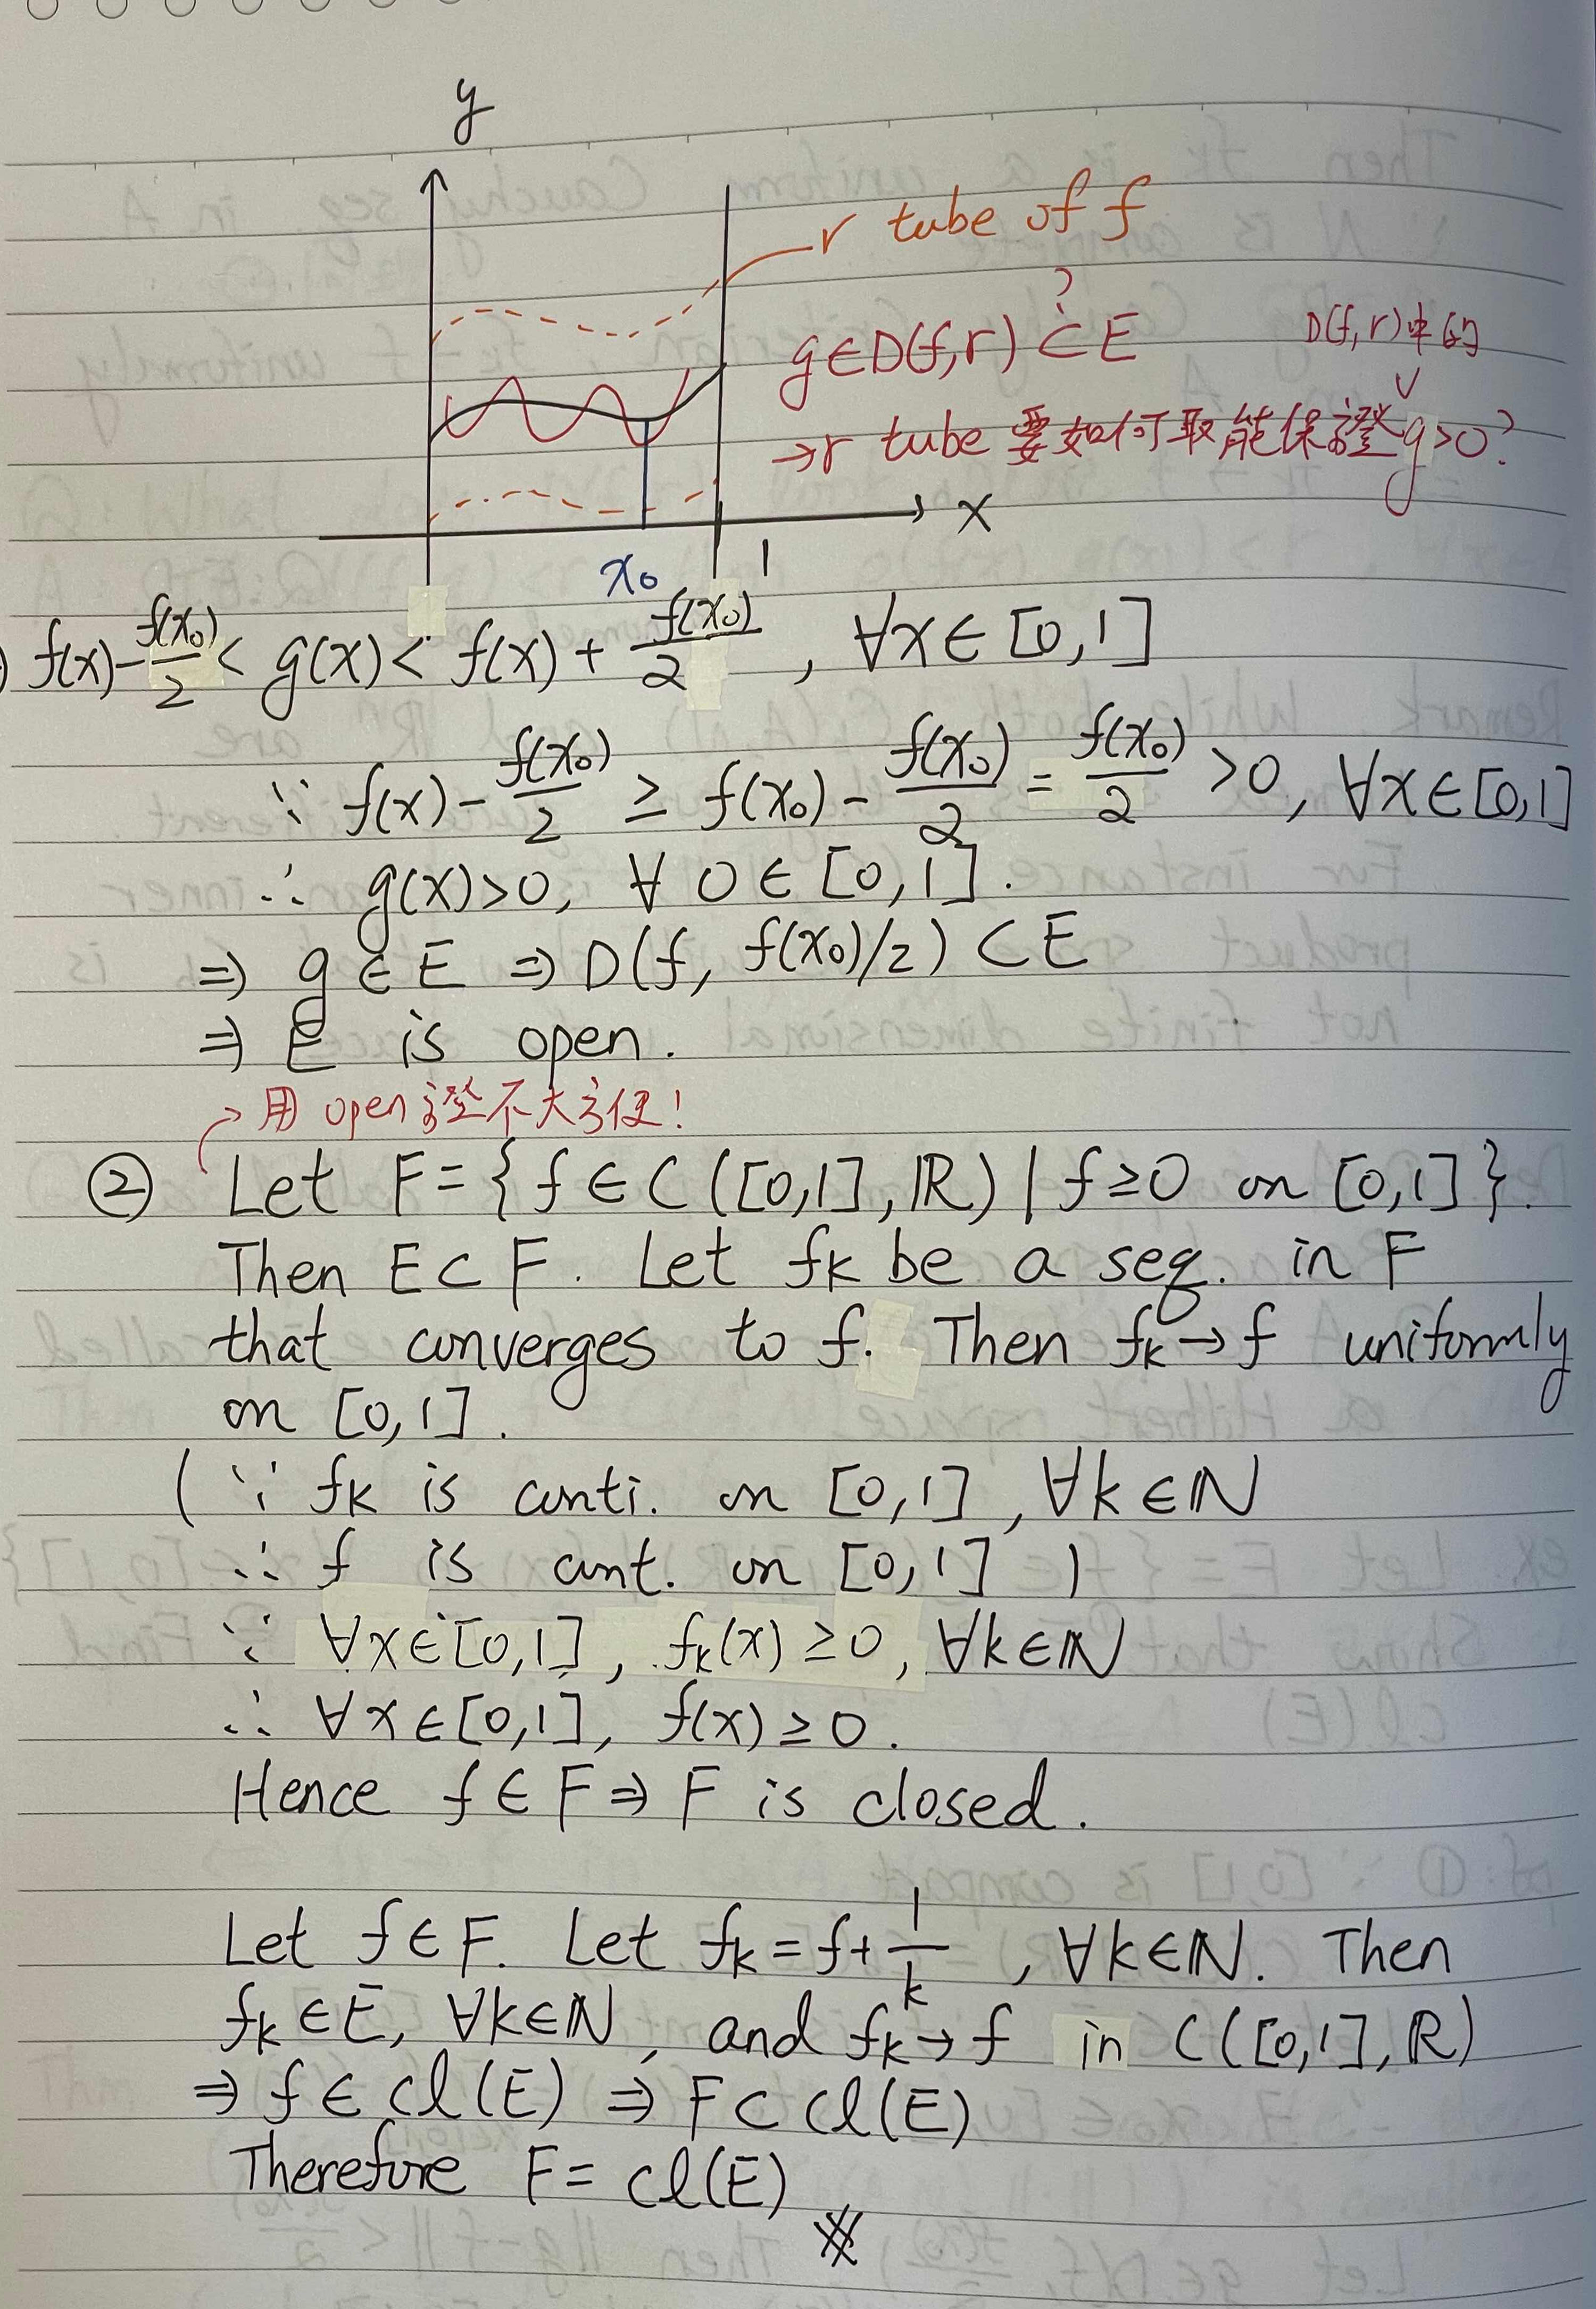 y
r tube of f
?
g∈D(f,r) ⊂ E
D(f,r)中的
→r tube 要如何取能保證 g>0?
x
x₀ 1
) f(x)-f(x₀)/2 < g(x) < f(x)+f(x₀)/2, ∀x∈[0,1]
∵ f(x)-f(x₀)/2 ≥ f(x₀)-f(x₀)/2 = f(x₀)/2 >0, ∀x∈[0,1]
∴ g(x)>0, ∀ 0∈[0,1].
⇒ g∈E ⇒ D(f, f(x₀)/2) ⊂ E
⇒ E is open.
用 open 證不大方便!
② Let F={f∈C([0,1],ℝ) | f≥0 on [0,1]}.
Then E⊂F. Let fk be a seq. in F
that converges to f. Then fk→f uniformly
on [0,1].
(∵ fk is conti. on [0,1], ∀k∈ℕ
∴ f is cont. on [0,1] )
∵ ∀x∈[0,1], fk(x)≥0, ∀k∈ℕ
∴ ∀x∈[0,1], f(x)≥0.
Hence f∈F ⇒ F is closed.
Let f∈F. Let fk=f+1/k, ∀k∈ℕ. Then
fk∈E, ∀k∈ℕ, and fk→f in C([0,1],ℝ)
⇒ f∈cl(E) ⇒ F⊂cl(E)
Therefore F=cl(E)